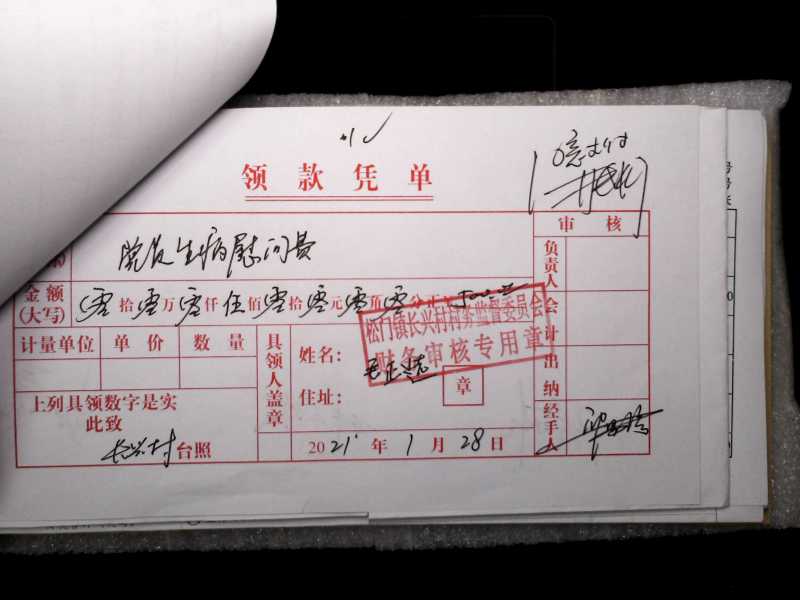 领款凭单
审核
生病慰问费
负责人
金额(大写) 零拾零万零仟伍佰零拾零元零角零分
会计
松门镇长兴村村务监督委员会
财务审核专用章
计量单位 单价 数量
具领人盖章
姓名:
住址: 章
出纳
上列具领数字是实
此致
长兴村台照
2021年1月28日
经手人